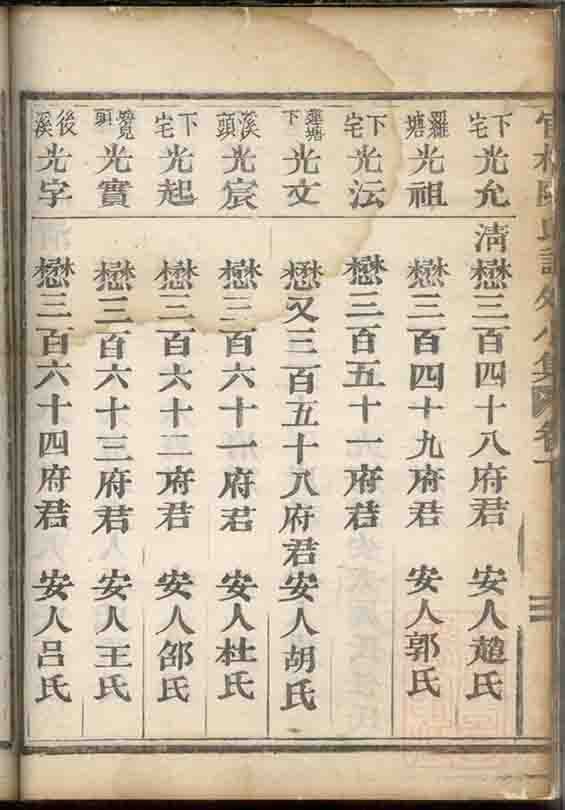 下宅 光允 清 懋三百四十八府君 安人趙氏
羅塘 光祖 懋三百四十九府君 安人郭氏
下宅 光沄 懋三百五十一府君
蓮塘下 光文 懋又三百五十八府君 安人胡氏
溪頭 光宸 懋三百六十一府君 安人杜氏
下宅 光起 懋三百六十二府君 安人邵氏
頭 光實 懋三百六十三府君 安人王氏
後溪 光字 懋三百六十四府君 安人呂氏